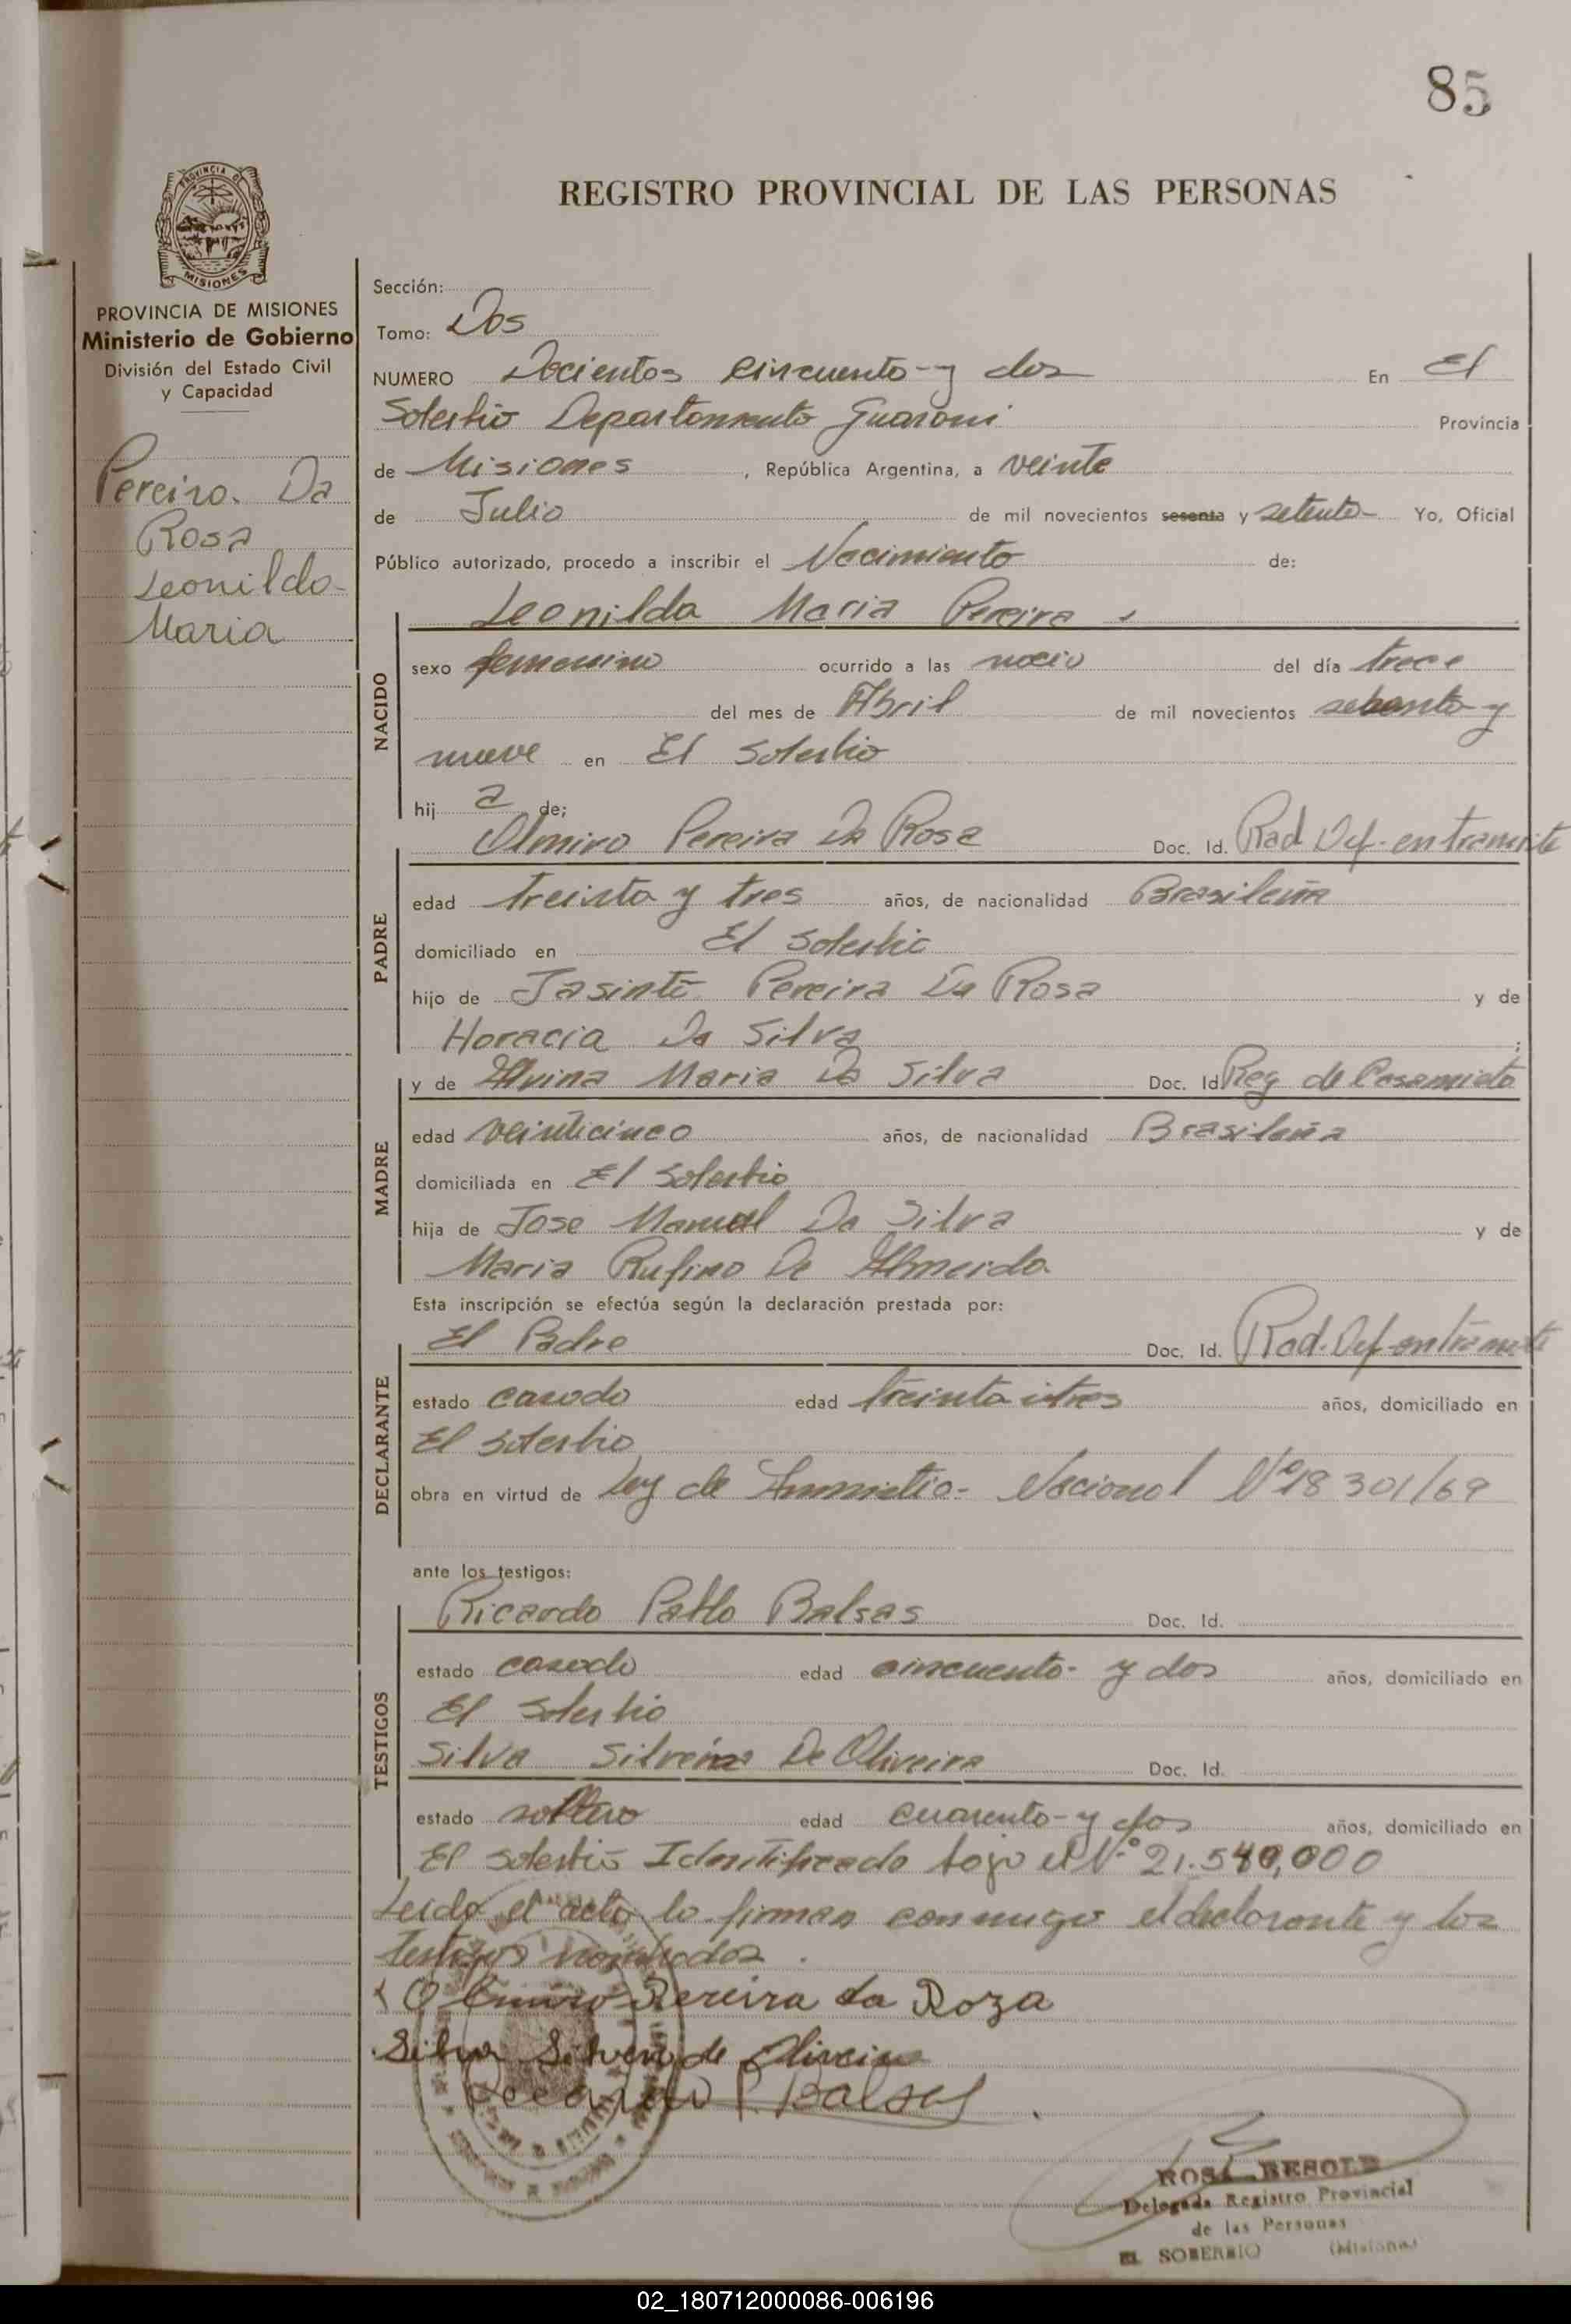 85
REGISTRO PROVINCIAL DE LAS PERSONAS
PROVINCIA DE
MISIONES
PROVINCIA DE MISIONES
Ministerio de Gobierno
División del Estado Civil
y Capacidad
Pereira. Da
Rosa
Leonilda
Maria
Sección:
Tomo: Dos
NUMERO Docientos cincuenta y dos En El
Soberbio Departamento Guarani Provincia
de Misiones, República Argentina, a veinte
de Julio de mil novecientos sesenta y setenta Yo, Oficial
Público autorizado, procedo a inscribir el Nacimiento de:
Leonilda Maria Pereira
NACIDO
sexo femenino ocurrido a las del día trece
del mes de Abril de mil novecientos sesenta y
nueve en El Soberbio
hij a de;
PADRE
Olmiro Pereira Da Rosa Doc. Id. Rad Def. en tramite
edad treinta y tres años, de nacionalidad Brasileña
domiciliado en El Soberbio
hijo de Jasinto Pereira Da Rosa y de
Horacia Da Silva;
MADRE
y de Alvina Maria Da Silva Doc. Id Reg de Casamiento
edad veinticinco años, de nacionalidad Brasileña
domiciliada en El Soberbio
hija de Jose Manuel Da Silva y de
Maria Rufino De Almeida
Esta inscripción se efectúa según la declaración prestada por:
DECLARANTE
El Padre Doc. Id. Rad. Def en tramite
estado casado edad treinta i tres años, domiciliado en
El Soberbio
obra en virtud de Ley de Amnistia Nacional Nº 18 301/69
ante los testigos:
TESTIGOS
Ricardo Pablo Balsas Doc. Id.
estado casado edad cincuenta y dos años, domiciliado en
El Soberbio
Silva Silveira De Oliveira Doc. Id.
estado soltero edad cuarenta y dos años, domiciliado en
El Soberbio Identificado bajo el Nº 21.540,000
Leida el acta lo firman conmigo el declarante y los
testigos nombrados.
Olmiro Pereira da Roza
Silva Silveira de Oliveira
Ricardo P. Balsas
ROSA
Delegada Registro Provincial
de las Personas
EL SOBERBIO (Misiones)
02_180712000086-006196